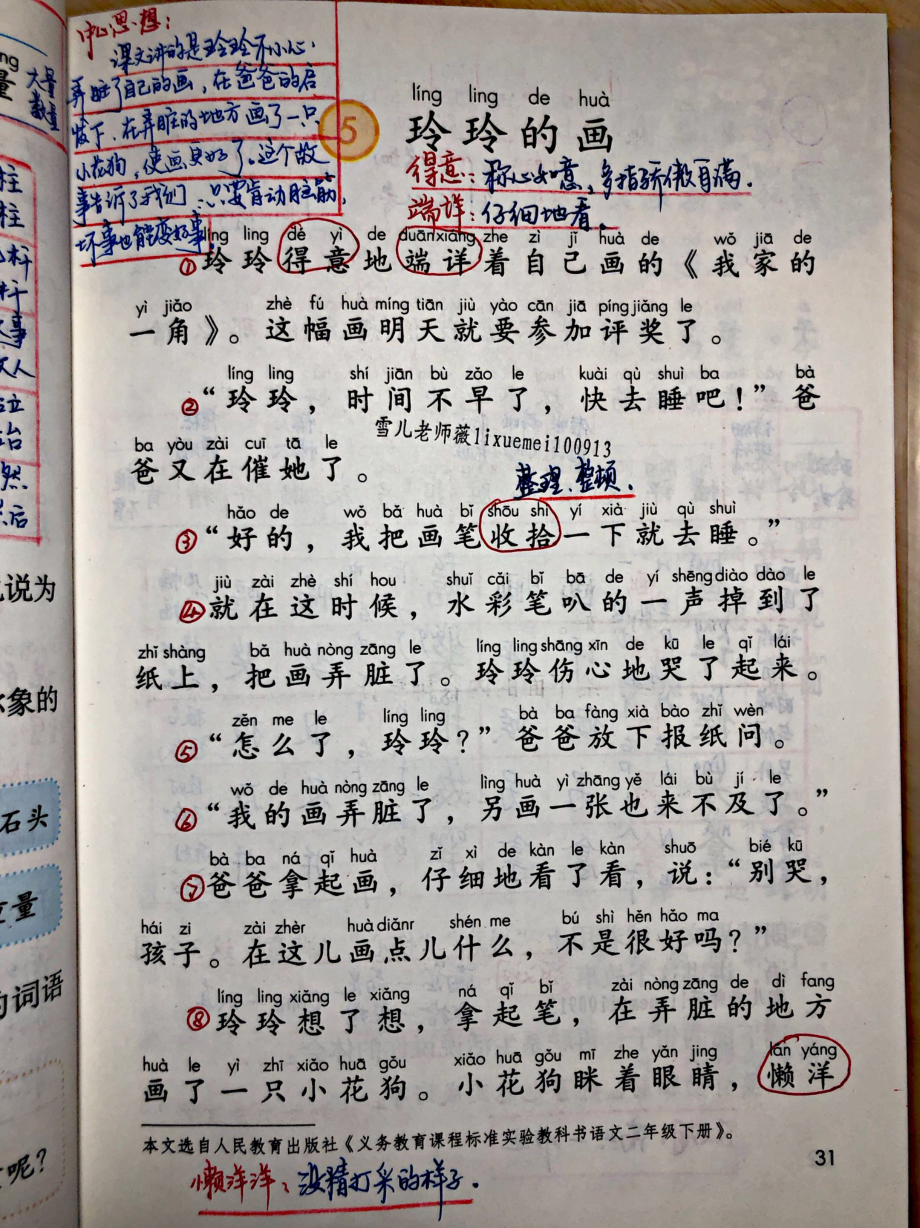 中心思想：
课文讲的是玲玲不小心
弄脏了自己的画，在爸爸的启
发下，在弄脏的地方画了一只
小花狗，使画更好了。这个故
事告诉了我们：只要肯动脑筋，
坏事也能变好事。
líng ling de huà
5 玲玲的画
得意：称心如意，多指骄傲自满。
端详：仔细地看。
líng ling dé yì de duān xiáng zhe zì jǐ huà de wǒ jiā de
①玲玲得意地端详着自己画的《我家的
yì jiǎo zhè fú huà míng tiān jiù yào cān jiā píng jiǎng le
一角》。这幅画明天就要参加评奖了。
líng ling shí jiān bù zǎo le kuài qù shuì ba bà
②“玲玲，时间不早了，快去睡吧！”爸
雪儿老师薇lixuemei100913
ba yòu zài cuī tā le
爸又在催她了。
整理、整顿。
hǎo de wǒ bǎ huà bǐ shōu shi yí xià jiù qù shuì
③“好的，我把画笔收拾一下就去睡。”
jiù zài zhè shí hou shuǐ cǎi bǐ bā de yì shēng diào dào le
④就在这时候，水彩笔叭的一声掉到了
zhǐ shàng bǎ huà nòng zāng le líng ling shāng xīn de kū le qǐ lái
纸上，把画弄脏了。玲玲伤心地哭了起来。
zěn me le líng ling bà ba fàng xià bào zhǐ wèn
⑤“怎么了，玲玲？”爸爸放下报纸问。
wǒ de huà nòng zāng le lìng huà yì zhāng yě lái bù jí le
⑥“我的画弄脏了，另画一张也来不及了。”
bà ba ná qǐ huà zǐ xì de kàn le kàn shuō bié kū
⑦爸爸拿起画，仔细地看了看，说：“别哭，
hái zi zài zhèr huà diǎnr shén me bú shì hěn hǎo ma
孩子。在这儿画点儿什么，不是很好吗？”
líng ling xiǎng le xiǎng ná qǐ bǐ zài nòng zāng de dì fang
⑧玲玲想了想，拿起笔，在弄脏的地方
huà le yì zhī xiǎo huā gǒu xiǎo huā gǒu mī zhe yǎn jing lǎn yáng
画了一只小花狗。小花狗眯着眼睛，懒洋
本文选自人民教育出版社《义务教育课程标准实验教科书语文二年级下册》。
31
懒洋洋：没精打采的样子。
大量
数量
说为
象的
石头
量
的词语
呢？